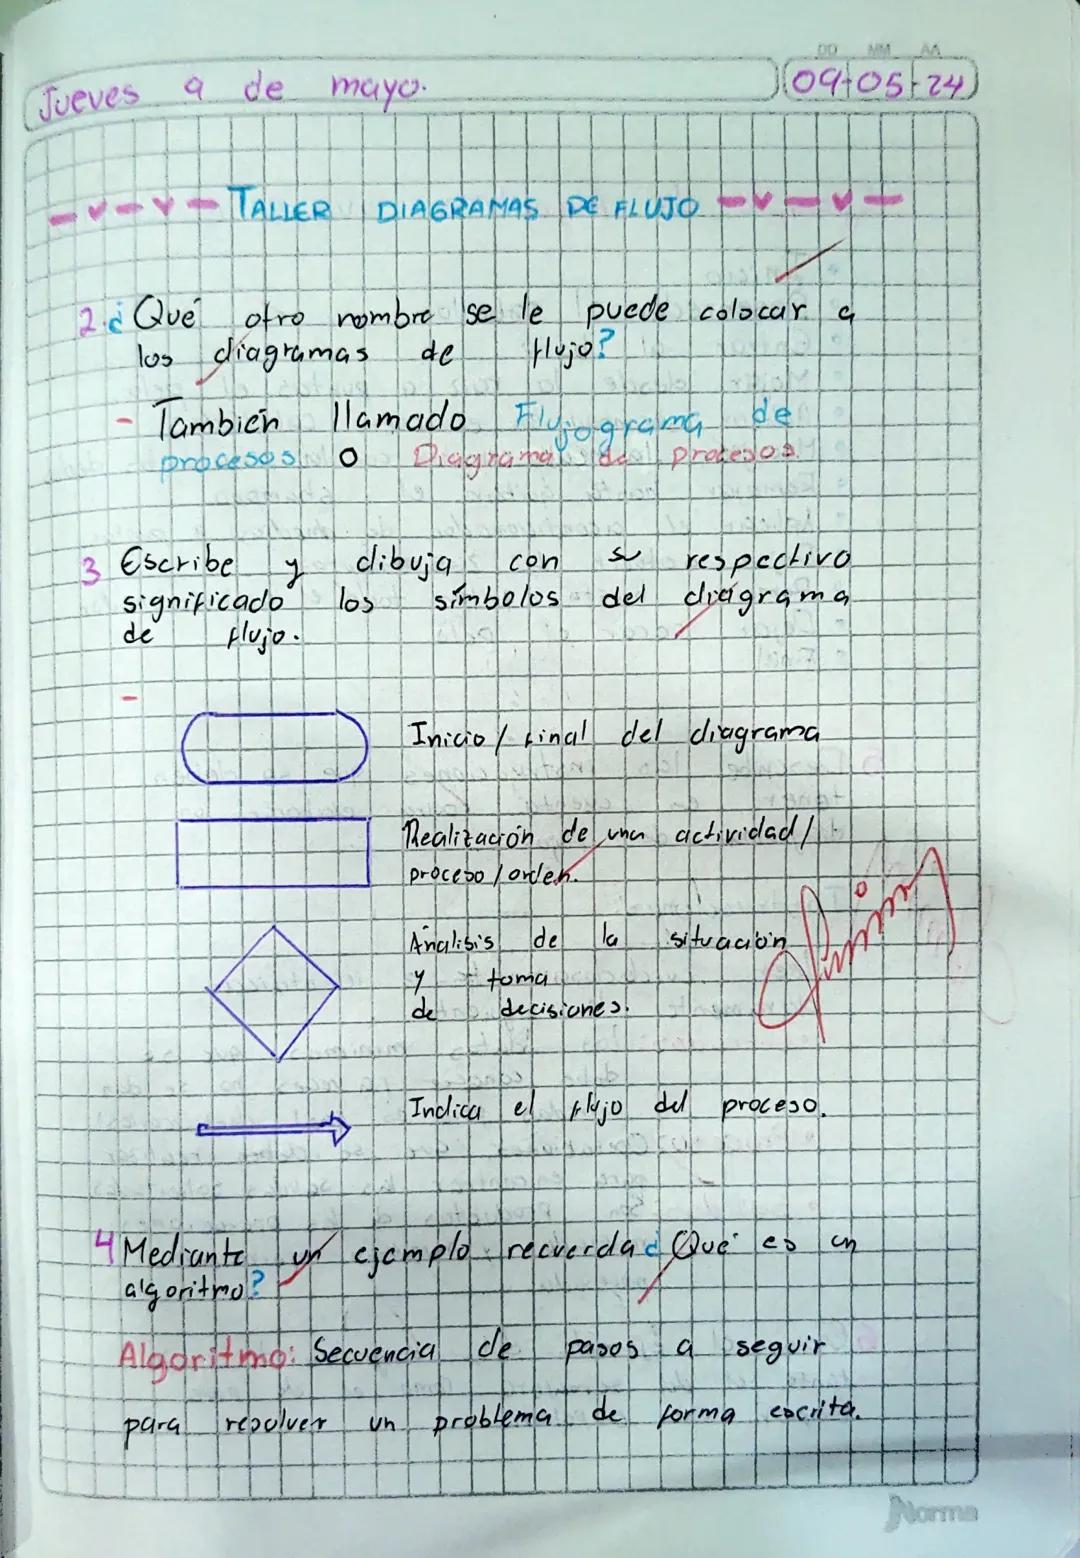 DD MM AA
Jueves 9 de mayo.
09-05-24
TALLER DIAGRAMAS DE FLUJO
2. ¿Qué otro nombre se le puede colocar a
los diagramas de flujo?
- También llamado Flujograma de
procesos O Diagrama de procesos.
3 Escribe y dibuja con su respectivo
significado los símbolos del diagrama
de flujo.
-
Inicio / final del diagrama
Realización de una actividad /
proceso / orden.
Análisis de la situación
y toma
de decisiones.
Indica el flujo del proceso.
4 Mediante un ejemplo recuerda ¿Qué es un
algoritmo?
Algoritmo: Secuencia de pasos a seguir
para resolver un problema de forma escrita.
Norma